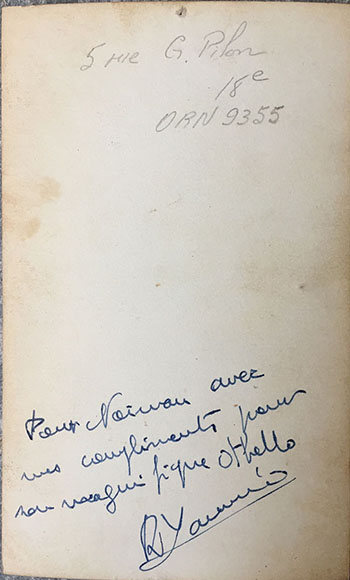 5 rue G. Pilon
18e
ORN 9355
Pour Norman avec
mes compliments pour
son magnifique Othello